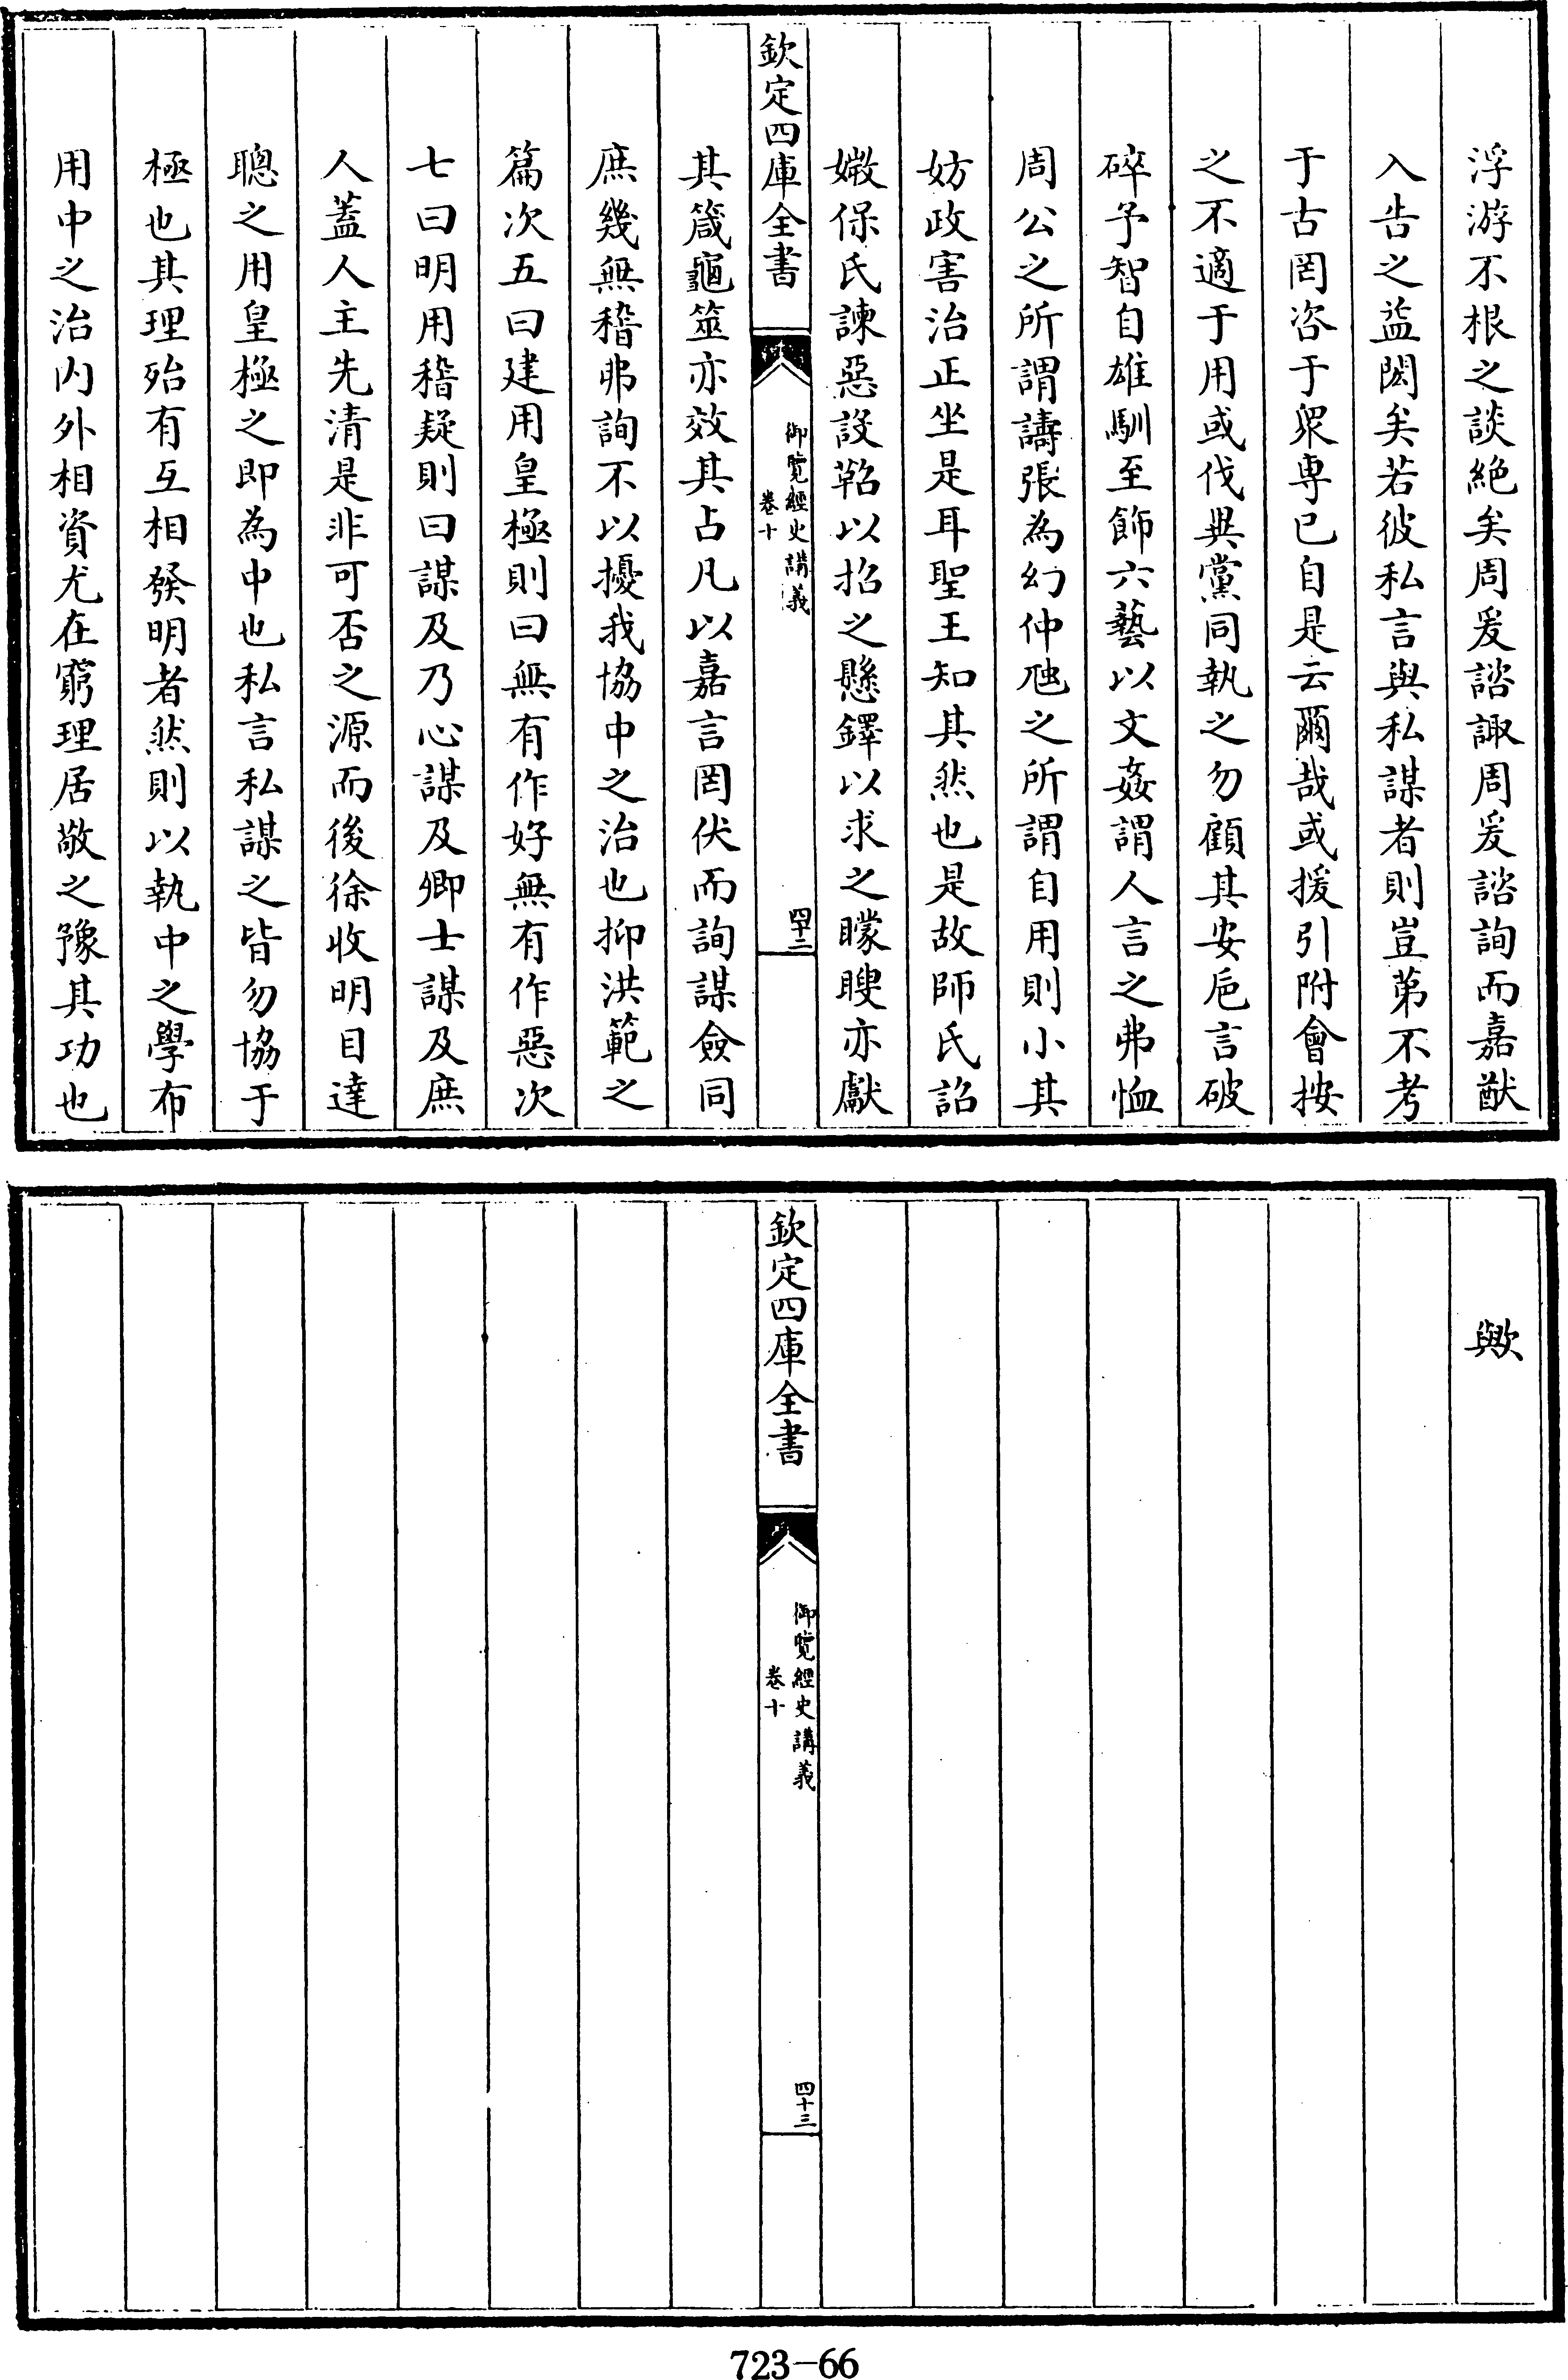 浮游不根之談絕矣周爰諮諏周爰諮詢而嘉猷
入告之益閎矣若彼私言與私謀者則豈第不考
于古罔咨于衆專已自是云爾哉或援引附會按
之不適于用或伐異黨同執之勿顧其安巵言破
碎予智自雄馴至飾六藝以文姦謂人言之弗恤
周公之所謂譸張為幻仲虺之所謂自用則小其
妨政害治正坐是耳聖王知其然也是故師氏詔
媺保氏諫惡設鞀以招之懸鐸以求之矇瞍亦獻
欽定四庫全書
御覽經史講義
卷十
四十二
其箴龜筮亦效其占凡以嘉言罔伏而詢謀僉同
庶幾無稽弗詢不以擾我協中之治也抑洪範之
篇次五曰建用皇極則曰無有作好無有作惡次
七曰明用稽疑則曰謀及乃心謀及卿士謀及庶
人蓋人主先清是非可否之源而後徐收明目達
聰之用皇極之即為中也私言私謀之皆勿協于
極也其理殆有互相發明者然則以執中之學布
用中之治内外相資尤在窮理居敬之豫其功也
歟
欽定四庫全書
御覽經史講義
卷十
四十三
723-66